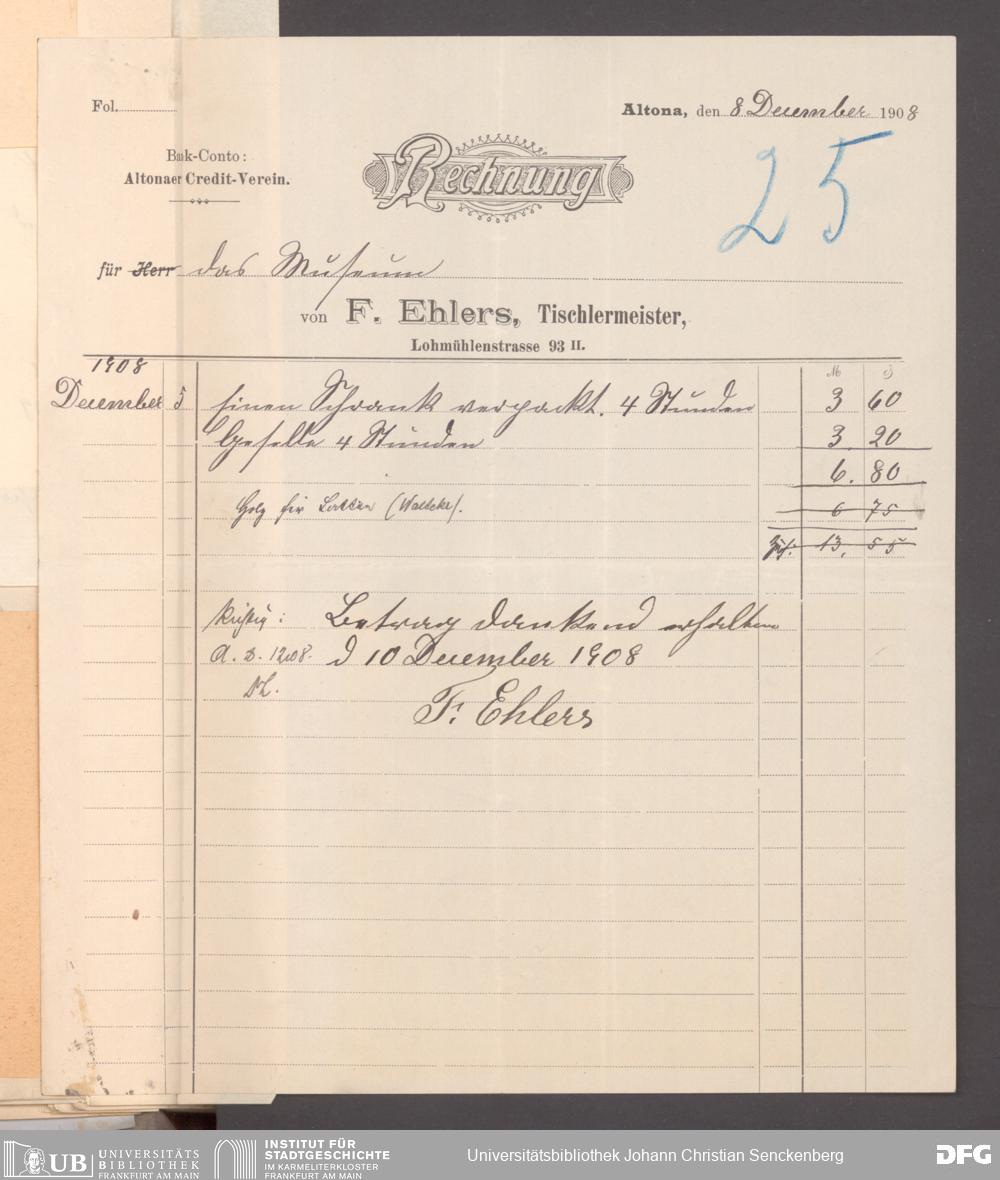 Fol.
Altona, den 8 December 1908
Bank-Conto:
Altonaer Credit-Verein.
Rechnung
25
für Herr das Museum
von F. Ehlers, Tischlermeister,
Lohmühlenstrasse 93 II.
1908
M ₰
December 5 Einen Schrank verpackt. 4 Stunden 3 60
Geselle 4 Stunden 3. 20
6. 80
Holz für Latten 6 75
Zus: 13, 55
Richtig: Betrag dankend erhalten
d 10 December 1908
F. Ehlers
UB UNIVERSITÄTS
BIBLIOTHEK
FRANKFURT AM MAIN
INSTITUT FÜR
STADTGESCHICHTE
IM KARMELITERKLOSTER
FRANKFURT AM MAIN
Universitätsbibliothek Johann Christian Senckenberg
DFG